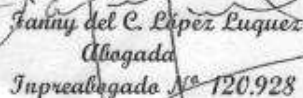 Fanny del C. López Luquez
Abogada
Inpreabogado Nº 120.928